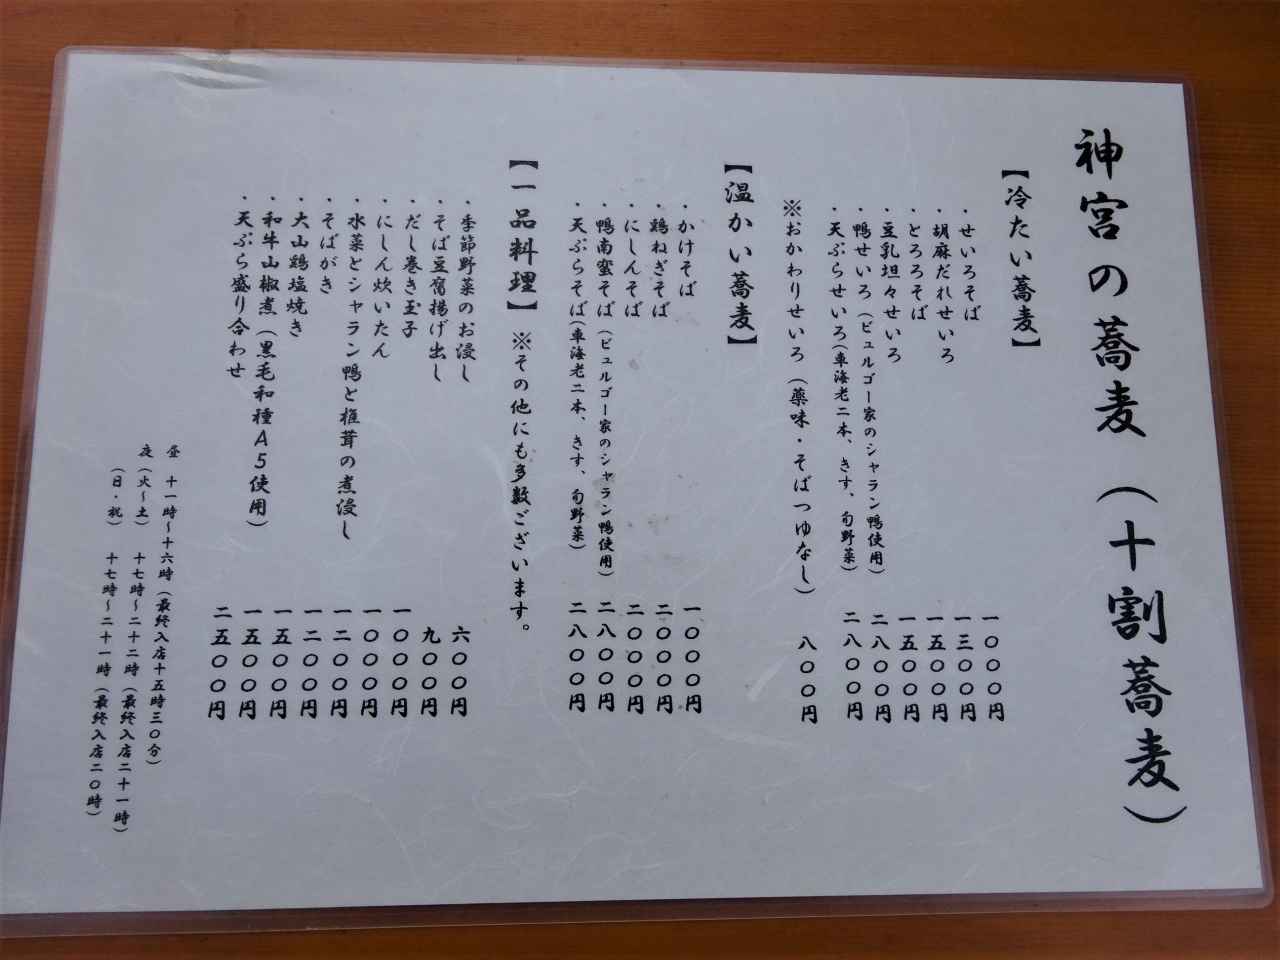 神宮の蕎麦（十割蕎麦）
【冷たい蕎麦】
・せいろそば 一〇〇〇円
・胡麻だれせいろ 一三〇〇円
・とろろそば 一五〇〇円
・豆乳坦々せいろ 一五〇〇円
・鴨せいろ（ビュルゴー家のシャラン鴨使用） 二八〇〇円
・天ぷらせいろ（車海老二本、きす、旬野菜） 二八〇〇円
※おかわりせいろ（薬味・そばつゆなし） 八〇〇円
【温かい蕎麦】
・かけそば 一〇〇〇円
・鶏ねぎそば 二〇〇〇円
・にしんそば 二〇〇〇円
・鴨南蛮そば（ビュルゴー家のシャラン鴨使用） 二八〇〇円
・天ぷらそば（車海老二本、きす、旬野菜） 二八〇〇円
【一品料理】※その他にも多数ございます。
・季節野菜のお浸し 六〇〇円
・そば豆腐揚げ出し 九〇〇円
・だし巻き玉子 一〇〇〇円
・にしん炊いたん 一〇〇〇円
・水菜とシャラン鴨と椎茸の煮浸し 一二〇〇円
・そばがき 一二〇〇円
・大山鶏塩焼き 一五〇〇円
・和牛山椒煮（黒毛和種Ａ５使用） 一五〇〇円
・天ぷら盛り合わせ 二五〇〇円
昼 十一時〜十六時（最終入店十五時三〇分）
夜（火〜土） 十七時〜二十二時（最終入店二十一時）
（日・祝） 十七時〜二十一時（最終入店二〇時）